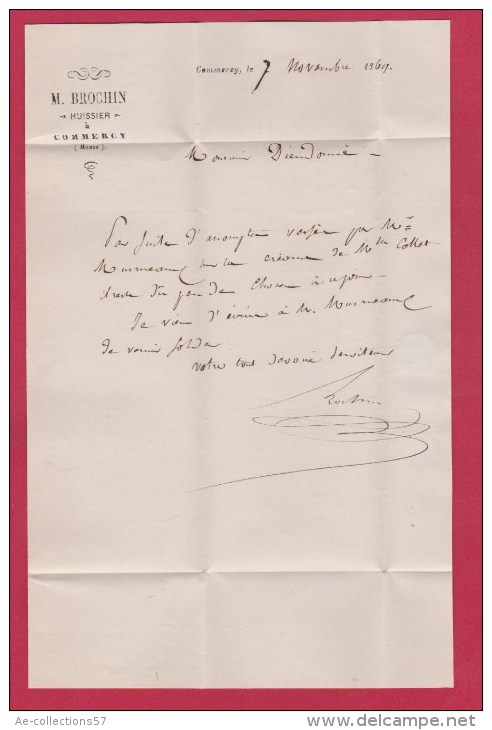 Commercy, le 7 Novembre 1869.
M. BROCHIN
HUISSIER
à
COMMERCY
(Meuse)
Monsieur Dieudonné
Par suite d'acompte versés par Mr
sur la créance de Mlle Collot
il reste dû peu de chose à ce jour
Je viens d'écrire à M.
de venir solder
Votre tout dévoué serviteur
Brochin
Ae-collections57
www.delcampe.net